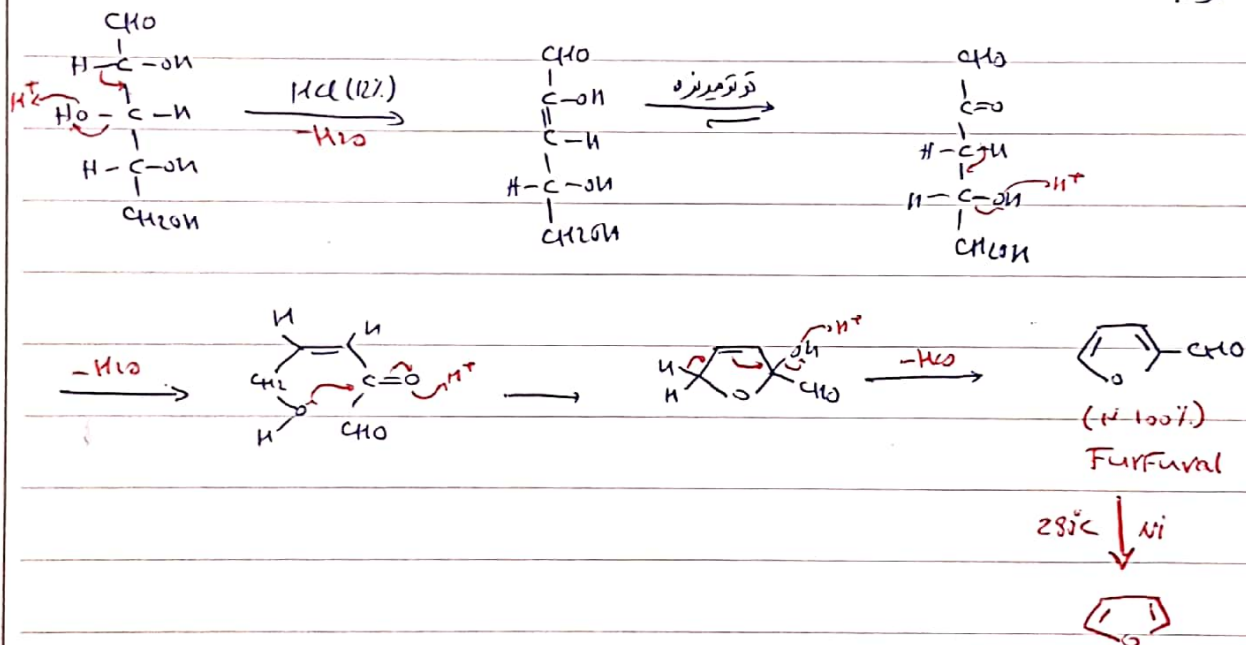 CHO
H-C-OH
H+
HO-C-H
H-C-OH
CH2OH
HCl (12%)
-H2O
CHO
C-OH
C-H
H-C-OH
CH2OH
توتومریزه
CHO
C=O
H-C-H
H-C-OH
H+
CH2OH
-H2O
H
H
CH2
O
H
C=O
H+
CHO
OH
H+
H
H
O
CHO
-H2O
O
CHO
(N 100%)
FurFural
280°C
Ni
O